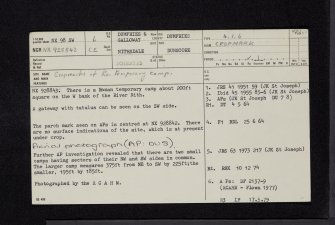 NX 98 SW 6
DUMFRIES & GALLOWAY
DUMFRIES
4.1.6
NX 928842 CE
NITHSDALE
DUNSCORE
CROPMARK
Cropmarks of Ro. Temporary Camps.
NX 928843. There is a Roman temporary camp about 200ft square on the W bank of the River Nith.
A gateway with tutulus can be seen on the SW side.
The parch mark seen on APs is centred at NX 928842. There are no surface indications of the site, which is at present under crop.
Aerial photograph (AP: DU5)
Further AP investigation revealed that there are two small camps having sectors of their NW and NE sides in common. The larger camp measures 375ft from NE to SW by 225ft; the smaller, 195ft by 185ft.
Photographed by the R C A H M.
1. JRS 41 1951 59 (JK St Joseph)
2. Ibid 45 1955 85-6 (JK St Joseph)
3. APs (JK St Joseph DU 7 8)
R1. DT 4 5 64
4. F1 WDJ 25 6 64
5. JRS 63 1973 217 (JK St Joseph)
R2. BHK 10 12 74
6. A Ps: DF 2137-9
(RCAHM - Flown 1977)
17.5.79